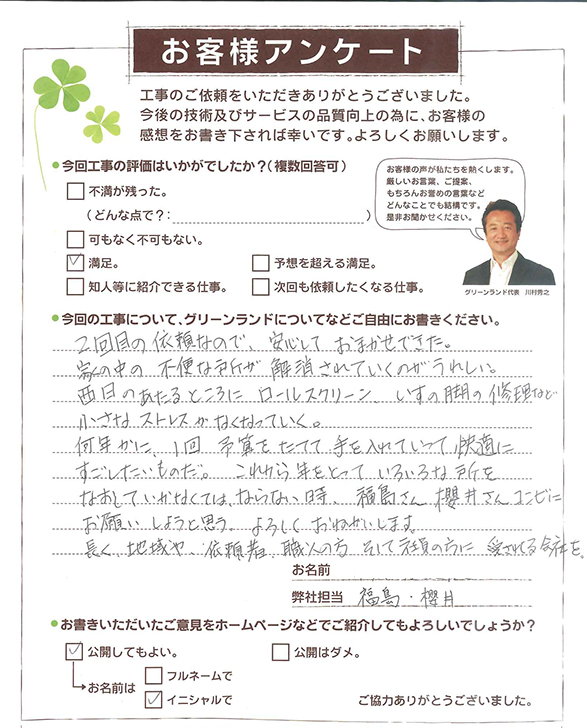 お客様アンケート
工事のご依頼をいただきありがとうございました。
今後の技術及びサービスの品質向上の為に、お客様の
感想をお書き下されば幸いです。よろしくお願いします。
●今回工事の評価はいかがでしたか？（複数回答可）
不満が残った。
（どんな点で？：）
可もなく不可もない。
満足。
予想を超える満足。
知人等に紹介できる仕事。
次回も依頼したくなる仕事。
お客様の声が私たちを熱くします。
厳しいお言葉、ご提案、
もちろんお誉めの言葉など
どんなことでも結構です。
是非お聞かせください。
グリーンランド代表 川村秀之
●今回の工事について、グリーンランドについてなどご自由にお書きください。
2回目の依頼なので、安心して おまかせできた。
家の中の 不便な所が 解消されていくのがうれしい。
西日のあたるところに ロールスクリーン いすの脚の修理など
小さな ストレスが なくなっていく。
何年かに、1回 予算をたてて 手を入れていって 快適に
すごしたいものだ。 これから 年をとって いろいろな 所を
なおしていかなくては、ならない 時、福島さん 櫻井さん コンビに
お願い しようと思う。よろしく おねがいします。
長く、地域や、依頼者、職人の方 そして 社員の方に 愛される 会社を。
お名前
弊社担当 福島・櫻井
●お書きいただいたご意見をホームページなどでご紹介してもよろしいでしょうか？
公開してもよい。
公開はダメ。
お名前は
フルネームで
イニシャルで
ご協力ありがとうございました。